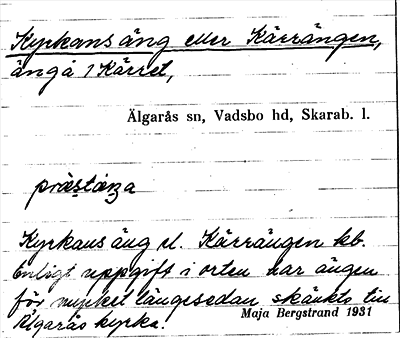 Kyrkans äng eller Kärrängen,
äng å 1 Kärret,
Älgarås sn, Vadsbo hd, Skarab. l.
præstæŋa
Kyrkans äng el. Kärrängen kb.
Enligt uppgift i orten har ängen
för mycket längesedan skänkts till
Älgarås kyrka.
Maja Bergstrand 1931